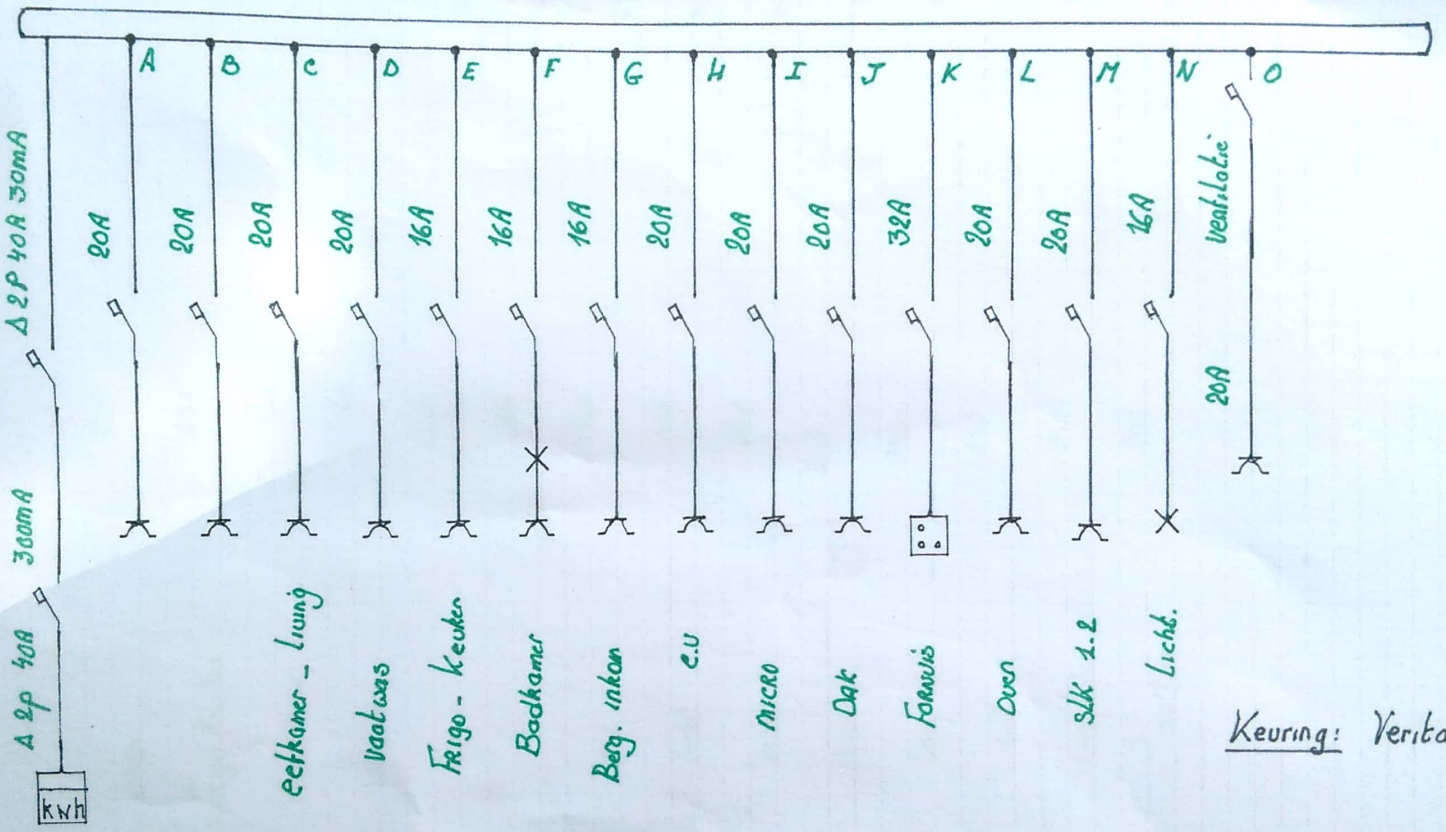 A B C D E F G H I J K L M N O
Δ 2P 40A 30mA
20A
20A
20A
20A
16A
16A
16A
20A
20A
20A
32A
20A
20A
16A
Ventilatie
20A
Δ 2P 40A 300mA
eetkamer - living
Vaatwas
Frigo - Keuken
Badkamer
Berg. inkom
C.V
Micro
Dak
Fornuis
Oven
SLK 1.2
Licht.
kwh
Keuring: